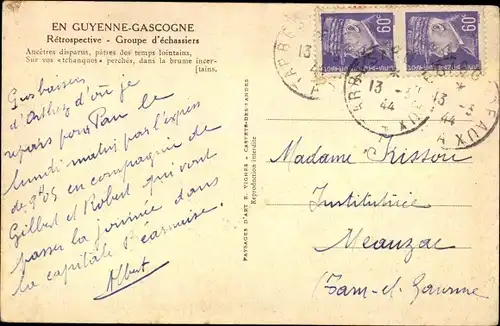 EN GUYENNE-GASCOGNE
Rétrospective - Groupe d'échassiers
Ancêtres disparus, pâtres des temps lointains,
Sur vos «tchanques» perchés, dans la brume incer-
[tains.
60c
60c
13
44
13 -3
44
13 -3
44
Gros baisers
d'Arthez d'où je
repars pour Pau le
lundi matin par l'express
de 9h05 en compagnie de
Gilbert et Robert qui vont
passer la journée dans
la capitale Béarnaise.
Albert
PAYSAGES D'ART E. VIGNES - CASTETS-DES-LANDES
Reproduction interdite
Madame Frissou
Institutrice
Meauzac
Tarn-et-Garonne